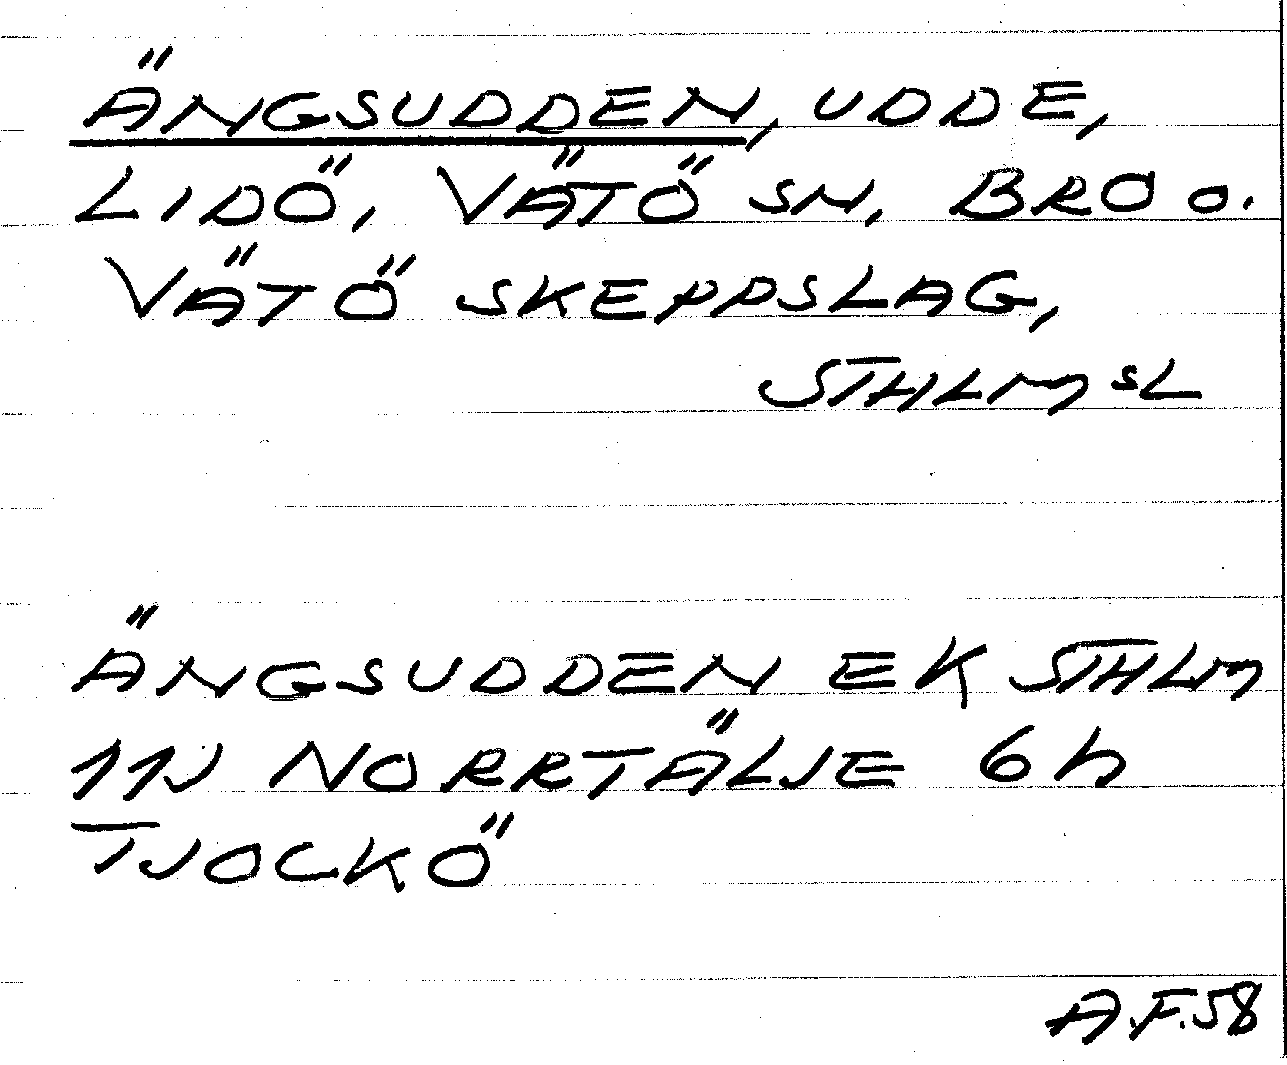 ÄNGSUDDEN, UDDE,
LIDÖ, VÄTÖ SN, BRO O.
VÄTÖ SKEPPSLAG,
STHLM SL
ÄNGSUDDEN EK STHLM
11J NORRTÄLJE 6h
TJOCKÖ
A.F.58